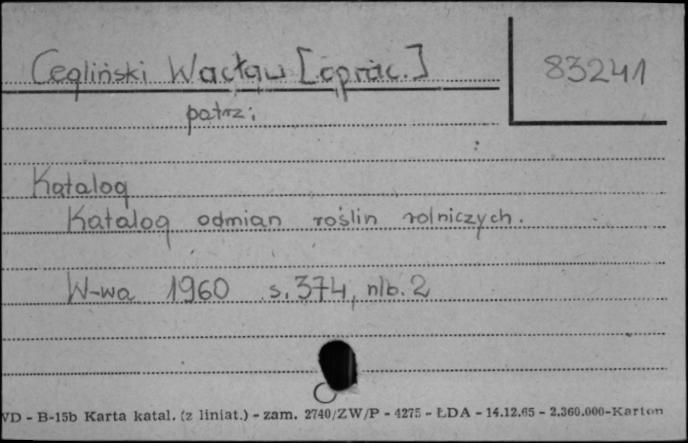 Cegliński Wacław [oprac.]
83241
patrz:
Katalog
Katalog odmian roślin rolniczych.
W-wa 1960 s. 374, nlb. 2
VD - B-15b Karta katal. (z liniat.) - zam. 2740/ZW/P - 4275 - ŁDA - 14.12.65 - 2.360.000-Karton